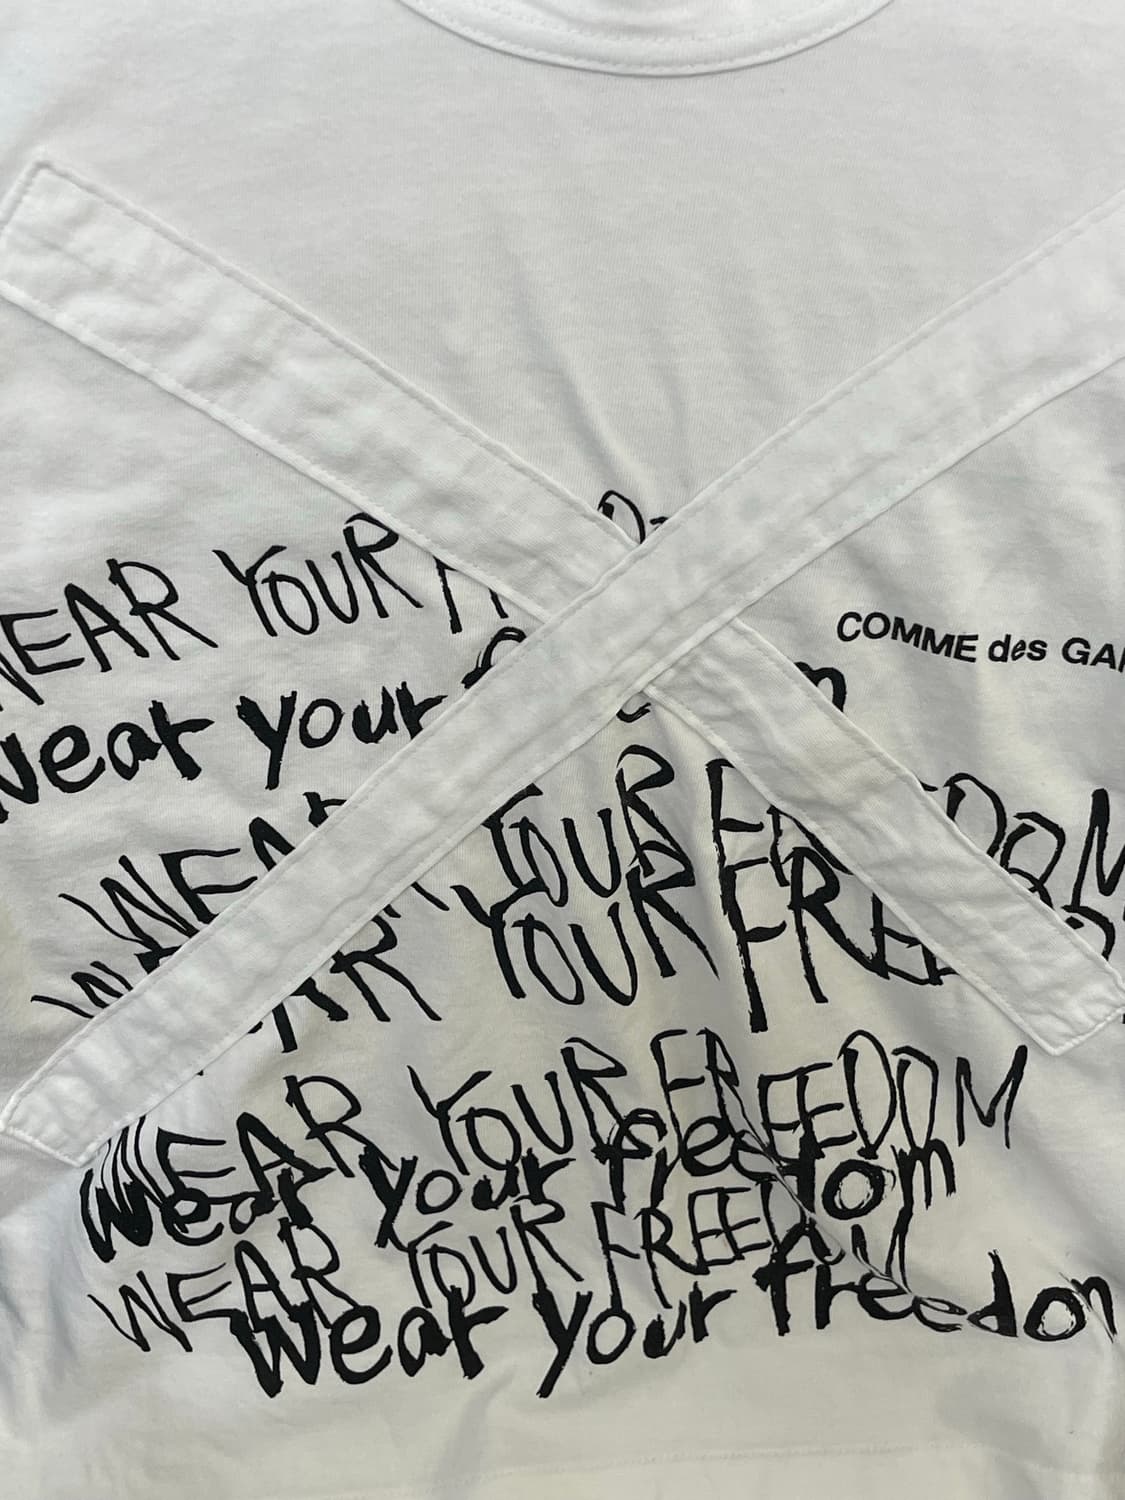 WEAR YOUR
COMME des GA
wear your
WEAR YOUR FREEDOM
WEAR YOUR FREED
WEAR YOUR FREEDOM
wear your freedom
WEAR YOUR FREEDOM
wear your freedom